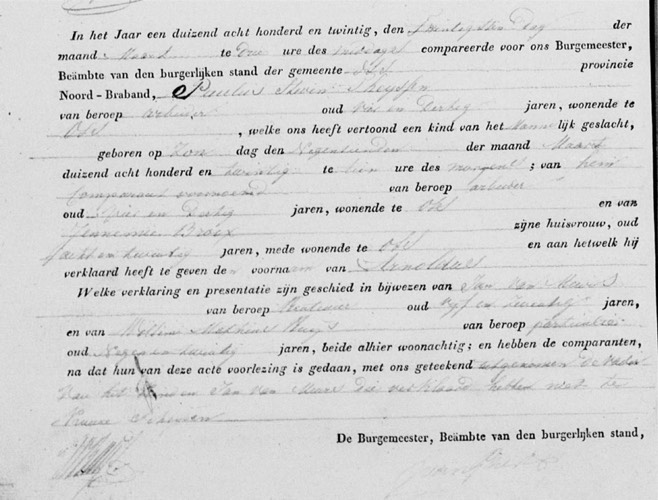 In het Jaar een duizend acht honderd en twintig, den Twentigsten Dag der
maand Maart te Drie ure des middags compareerde voor ons Burgemeester,
Beämbte van den burgerlijken stand der gemeente Oss provincie
Noord-Braband, Paulus
van beroep arbeider oud Vier en Dertig jaren, wonende te
Oss , welke ons heeft vertoond een kind van het Manne lijk geslacht,
geboren op Zon dag den Negentienden der maand Maart
duizend acht honderd en twintig te tien ure des morgens ; van hem
Comparant voornoemd van beroep arbeider
oud Vier en Dertig jaren, wonende te Oss en van
Jennemie Broex zijne huisvrouw, oud
acht en twintig jaren, mede wonende te Oss en aan hetwelk hij
verklaard heeft te geven den voornaem van Arnoldus
Welke verklaring en presentatie zijn geschied in bijwezen van Jan van
van beroep oud vyf en twentig jaren,
en van Willem van beroep particulier
oud Negen en twintig jaren, beide alhier woonachtig; en hebben de comparanten,
na dat hun van deze acte voorlezing is gedaan, met ons geteekend uitgenomen de Vader
van het Kind en Jan van die verklaard hebben niet te